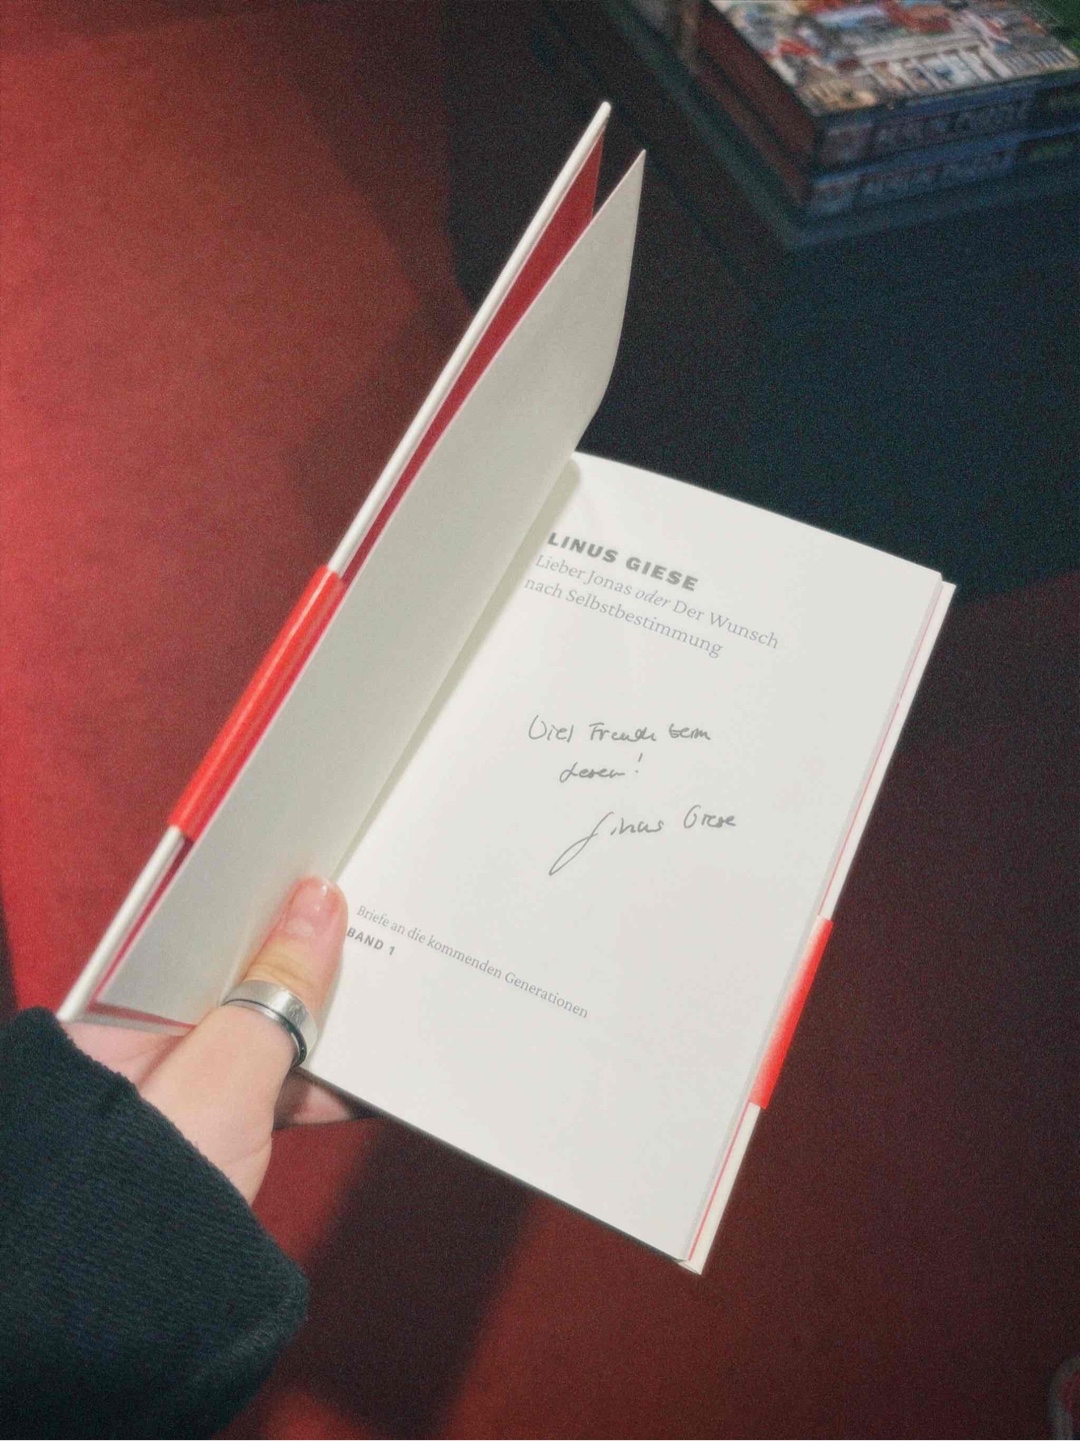 LINUS GIESE
Lieber Jonas oder Der Wunsch
nach Selbstbestimmung
Viel Freude beim
Lesen!
Linus Giese
Briefe an die kommenden Generationen
BAND 1